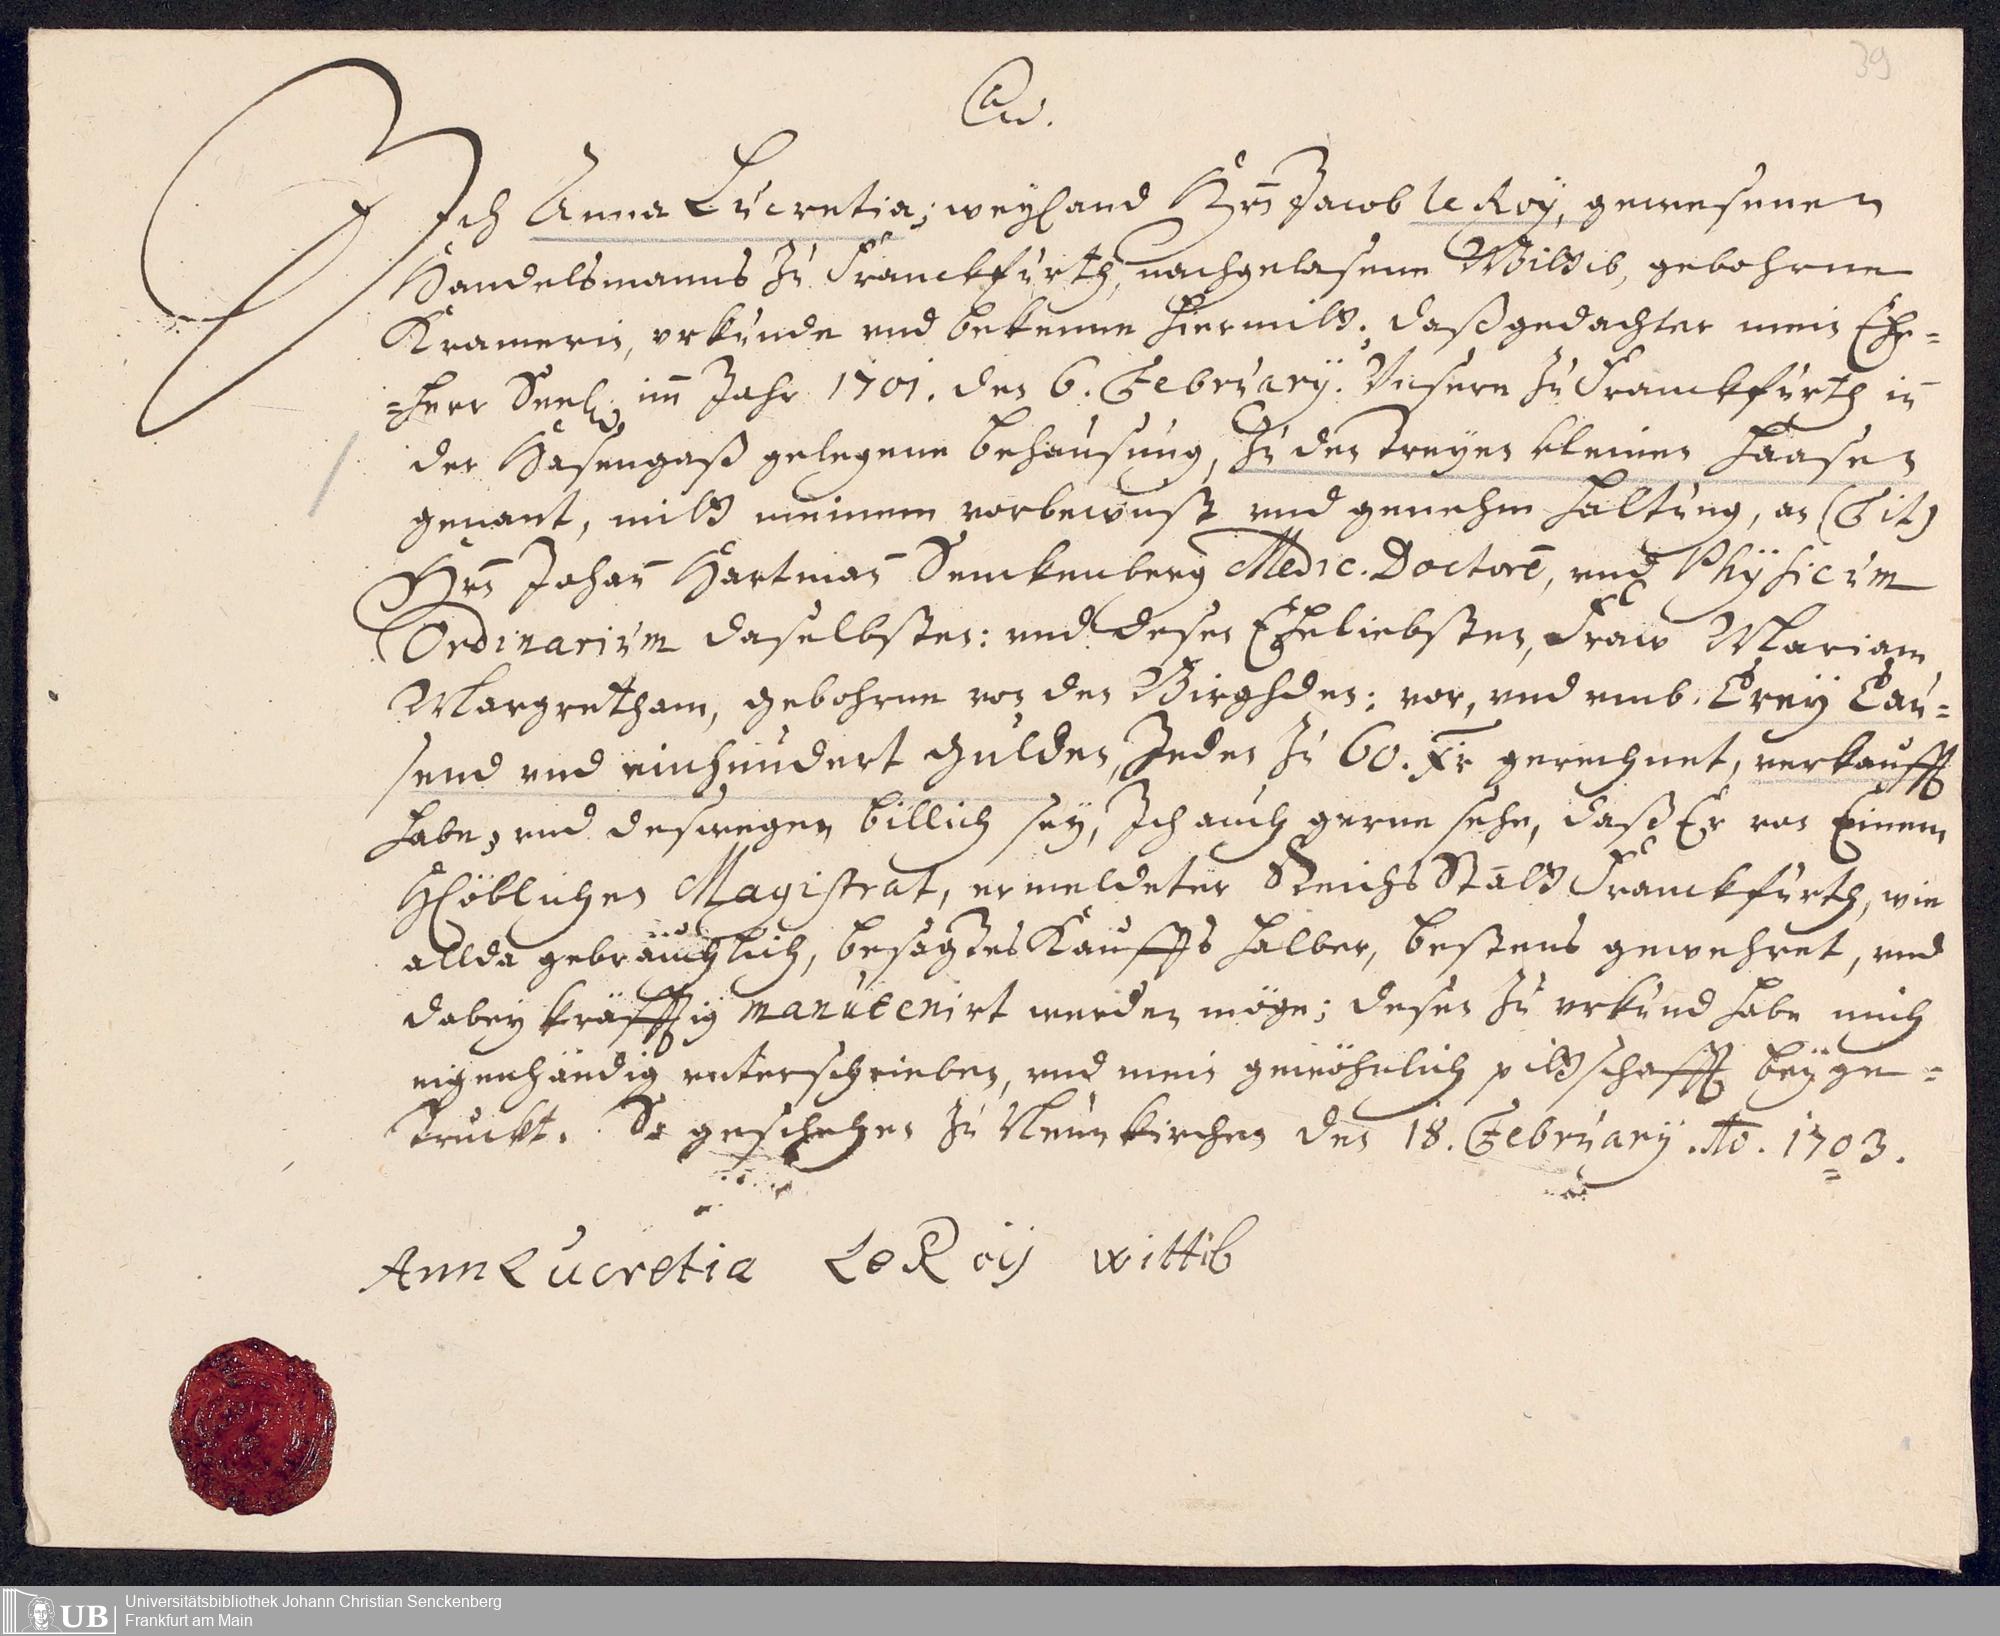 39
Ich Anna Lucretia; weyland Hrn Jacob le Roÿ, gewesenen
Handelsmanns zu Franckfurth, nachgelasene Wittib, gebohrne
Kramerin, urkunde und bekenne hiermitt; daß gedachter mein Ehe=
=herr Seel. im Jahr 1701. den 6. February. Unsere zu Franckfurth in
der Hasengaß gelegene behausung, zu den dreyen kleinen Haasen
genant, mitt meinem vorbewust und genehm haltung, an (Tit)
Hrn Johan Hartman Senckenberg Medic. Doctore, und Physicum
Ordinarium daselbsten: und desen Eheliebsten, Fraw Mariam
Margretham, gebohrne von den Birghden; vor, und umb. Drey Tau=
send und einhundert gulden, Jeden zu 60. Xr gerechnet, verkaufft
habe; und deswegen billich sey, Ich auch gerne sehe, daß Er von Einem
HLöblichen Magistrat, ermeldeter Reichs Statt Franckfurth, wie
allda gebräuchlich, besagtes Kauffs halber, bestens gewehret, und
dabey kräfftig manutenirt werden möge; desen zu urkund habe mich
eigenhändig unterschrieben, und mein gewöhnlich pittschafft beÿge=
truckt. So geschehen zu Neunkirchen den 18. February. Ao. 1703.
Ann Lucretia Le Roij wittib
UB
Universitätsbibliothek Johann Christian Senckenberg
Frankfurt am Main